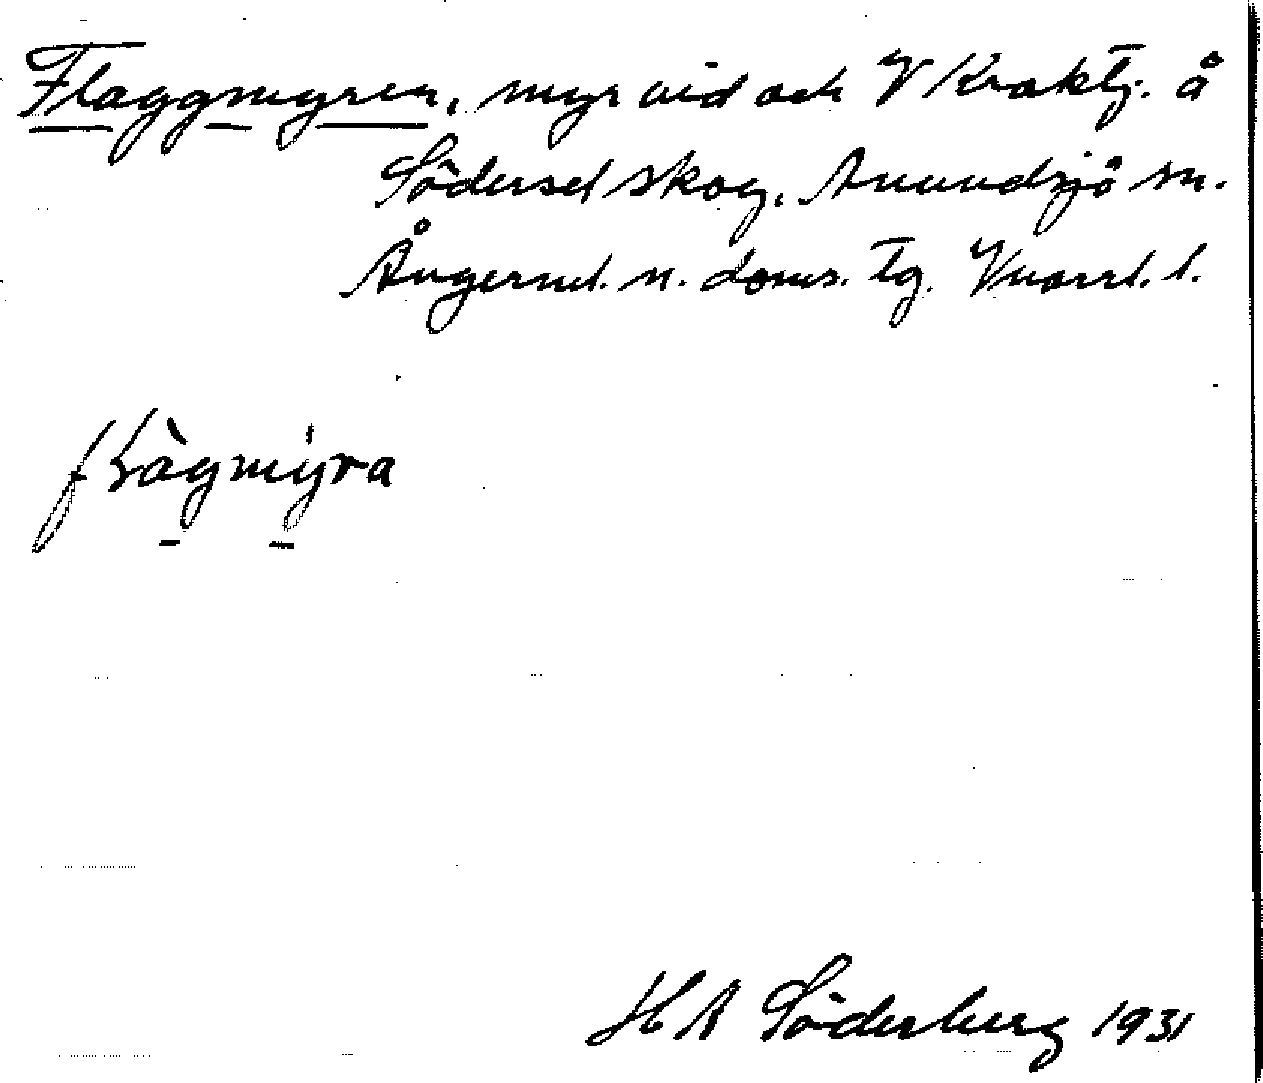 Flaggmyren, myr vid och V Kraktj. å
Södersel skog, Anundsjö sn.
Ångerml. n. doms. tg. Vnorrl. l.
flàgmyra
H A Söderberg 1931